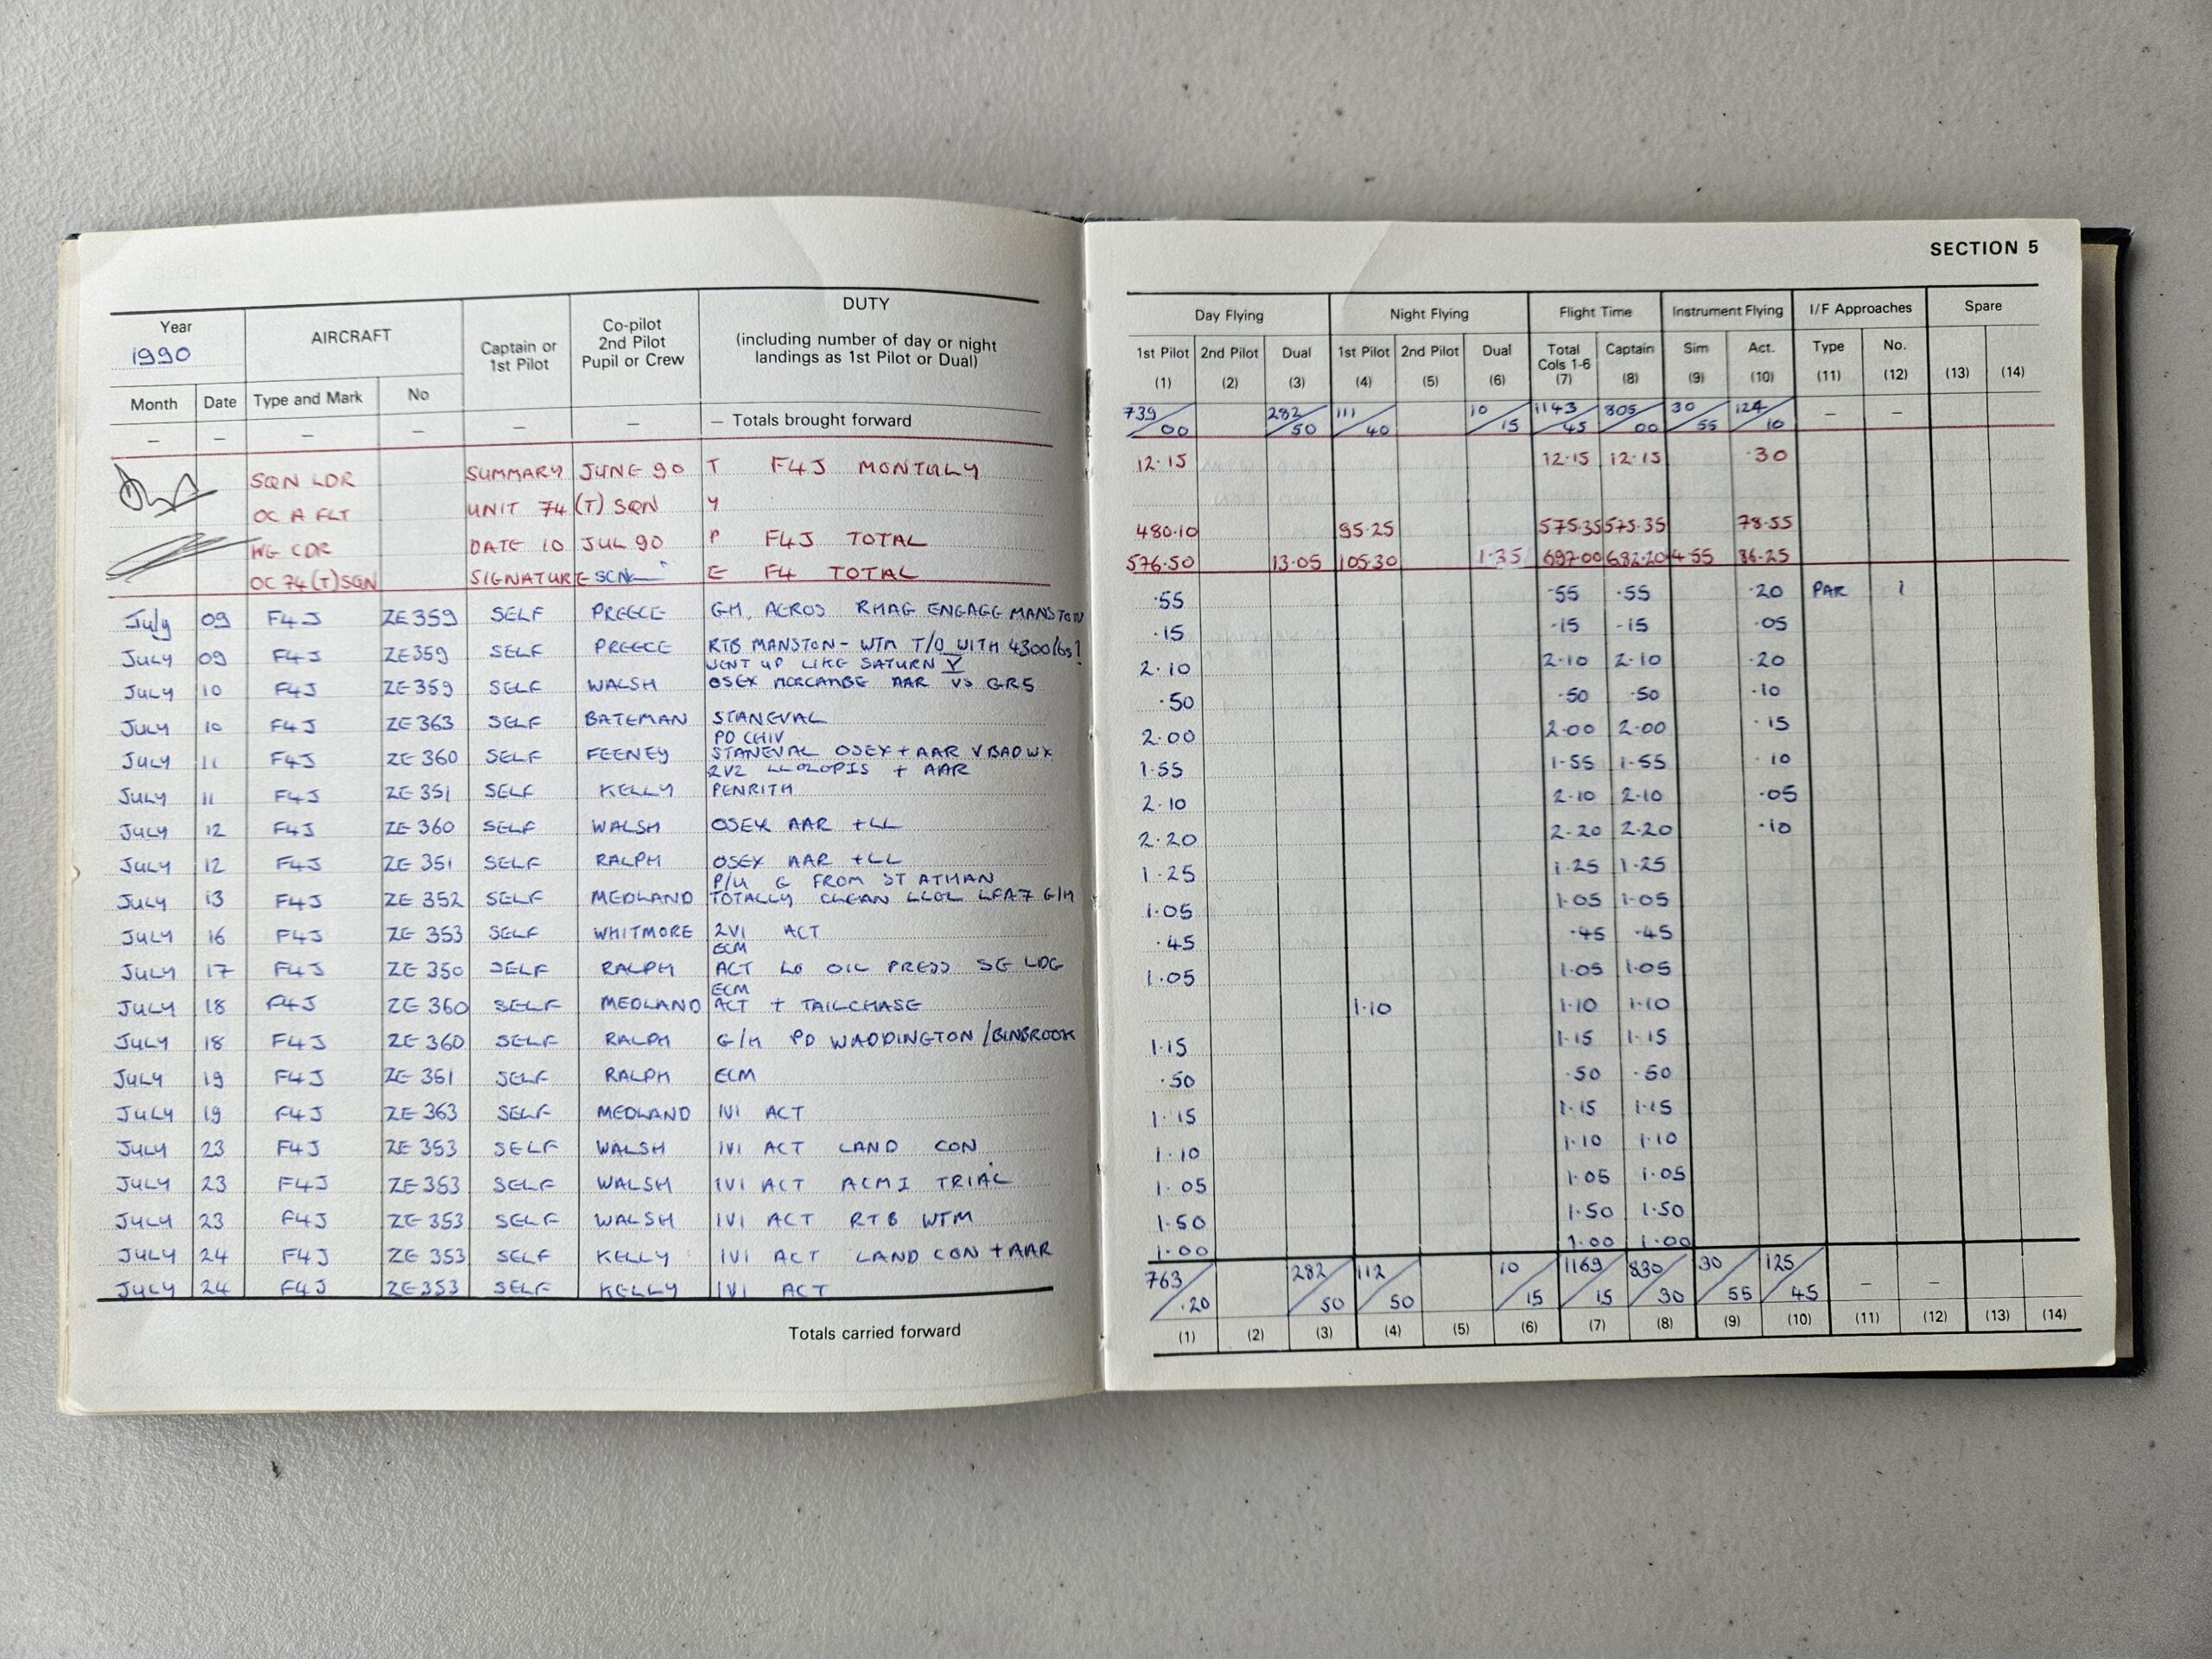 SECTION 5
Year 1990 AIRCRAFT Captain or 1st Pilot Co-pilot 2nd Pilot Pupil or Crew DUTY (including number of day or night landings as 1st Pilot or Dual) Day Flying Night Flying Flight Time Instrument Flying I/F Approaches Spare
Month Date Type and Mark No 1st Pilot 2nd Pilot Dual 1st Pilot 2nd Pilot Dual Total Cols 1-6 Captain Sim Act. Type No.
(1) (2) (3) (4) (5) (6) (7) (8) (9) (10) (11) (12) (13) (14)
— — — — — — — Totals brought forward 739/00 282/50 111/40 10/15 1143/45 805/00 30/55 124/10 — —
SQN LDR SUMMARY JUNE 90 T F4J MONTHLY 12·15 12·15 12·15 ·30
OC A FLT UNIT 74 (T) SQN Y
WG CDR DATE 10 JUL 90 P F4J TOTAL 480·10 95·25 575·35 575·35 78·55
OC 74(T) SQN SIGNATURE E F4 TOTAL 576·50 13·05 105·30 1·35 697·00 682·20 4·55 86·25
July 09 F4J ZE359 SELF PREECE GH, AEROS RHAG ENGAGE MANSTON ·55 ·55 ·55 ·20 PAR 1
JULY 09 F4J ZE359 SELF PREECE RTB MANSTON - WTM T/O WITH 4300lbs! ·15 ·15 ·15 ·05
WENT UP LIKE SATURN V
JULY 10 F4J ZE359 SELF WALSH OSEX AAR VS GR5 2·10 2·10 2·10 ·20
JULY 10 F4J ZE363 SELF BATEMAN STANEVAL ·50 ·50 ·50 ·10
PD CHIV
JULY 11 F4J ZE360 SELF FEENEY STANEVAL OSEX + AAR V BAD WX 2·00 2·00 2·00 ·15
2V2 + AAR
JULY 11 F4J ZE351 SELF KELLY PENRITH 1·55 1·55 1·55 ·10
JULY 12 F4J ZE360 SELF WALSH OSEX AAR + LL 2·10 2·10 2·10 ·05
JULY 12 F4J ZE351 SELF RALPH OSEX AAR + LL 2·20 2·20 2·20 ·10
P/U G FROM ST ATHAN
JULY 13 F4J ZE352 SELF MEDLAND TOTALLY CLEAN LLOL LFA7 G/H 1·25 1·25 1·25
JULY 16 F4J ZE353 SELF WHITMORE 2V1 ACT 1·05 1·05 1·05
ECM
JULY 17 F4J ZE350 SELF RALPH ACT LO OIL PRESS SE LDG ·45 ·45 ·45
ECM
JULY 18 F4J ZE360 SELF MEDLAND ACT + TAILCHASE 1·05 1·05 1·05
JULY 18 F4J ZE360 SELF RALPH G/H PD WADDINGTON/BINBROOK 1·10 1·10 1·10
JULY 19 F4J ZE361 SELF RALPH ECM 1·15 1·15 1·15
JULY 19 F4J ZE363 SELF MEDLAND 1V1 ACT ·50 ·50 ·50
JULY 23 F4J ZE353 SELF WALSH 1V1 ACT LAND CON 1·15 1·15 1·15
JULY 23 F4J ZE353 SELF WALSH 1V1 ACT ACMI TRIAL 1·10 1·10 1·10
JULY 23 F4J ZE353 SELF WALSH 1V1 ACT RTB WTM 1·05 1·05 1·05
JULY 24 F4J ZE353 SELF KELLY 1V1 ACT LAND CON + AAR 1·50 1·50 1·50
JULY 24 F4J ZE353 SELF KELLY 1V1 ACT 1·00 1·00 1·00
Totals carried forward 763/·20 282/50 112/50 10/15 1169/15 830/30 30/55 125/45 — —
(1) (2) (3) (4) (5) (6) (7) (8) (9) (10) (11) (12) (13) (14)